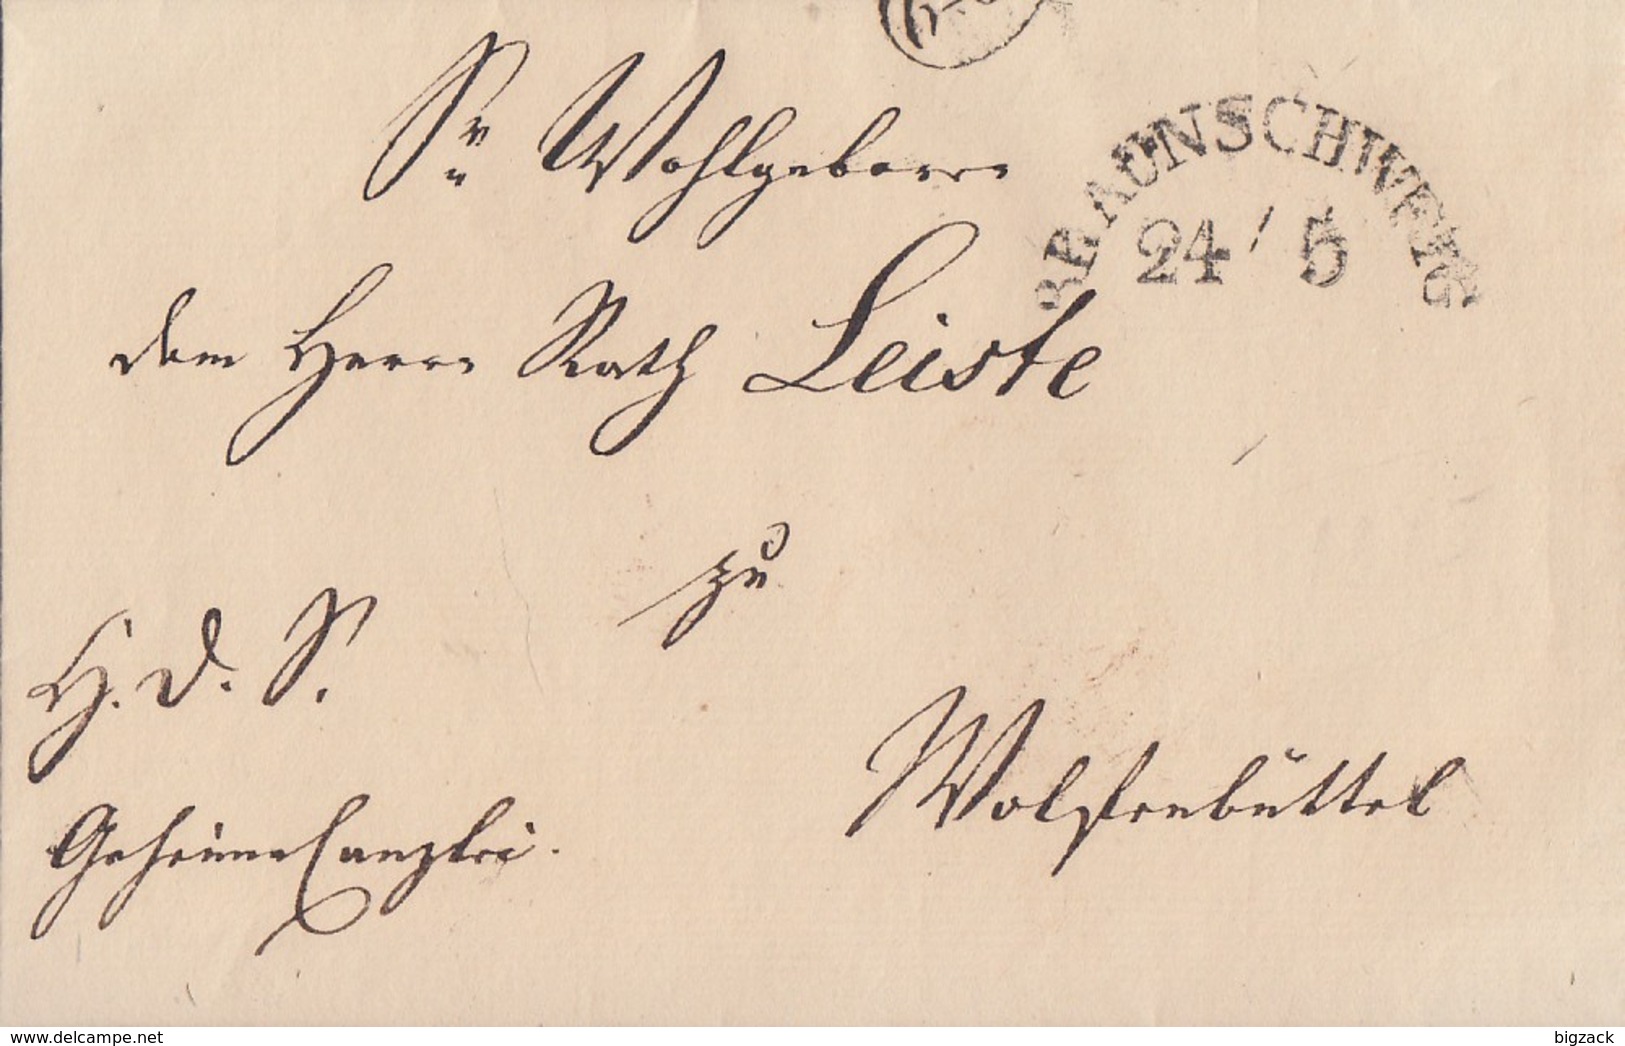 Sr Wohlgeboren
BRAUNSCHWEIG
24 / 5
dem Herrn Rath Leiste
zu
H. d. S.
Wolfenbüttel
Geheime Canzlei.
www.delcampe.net
bigzack